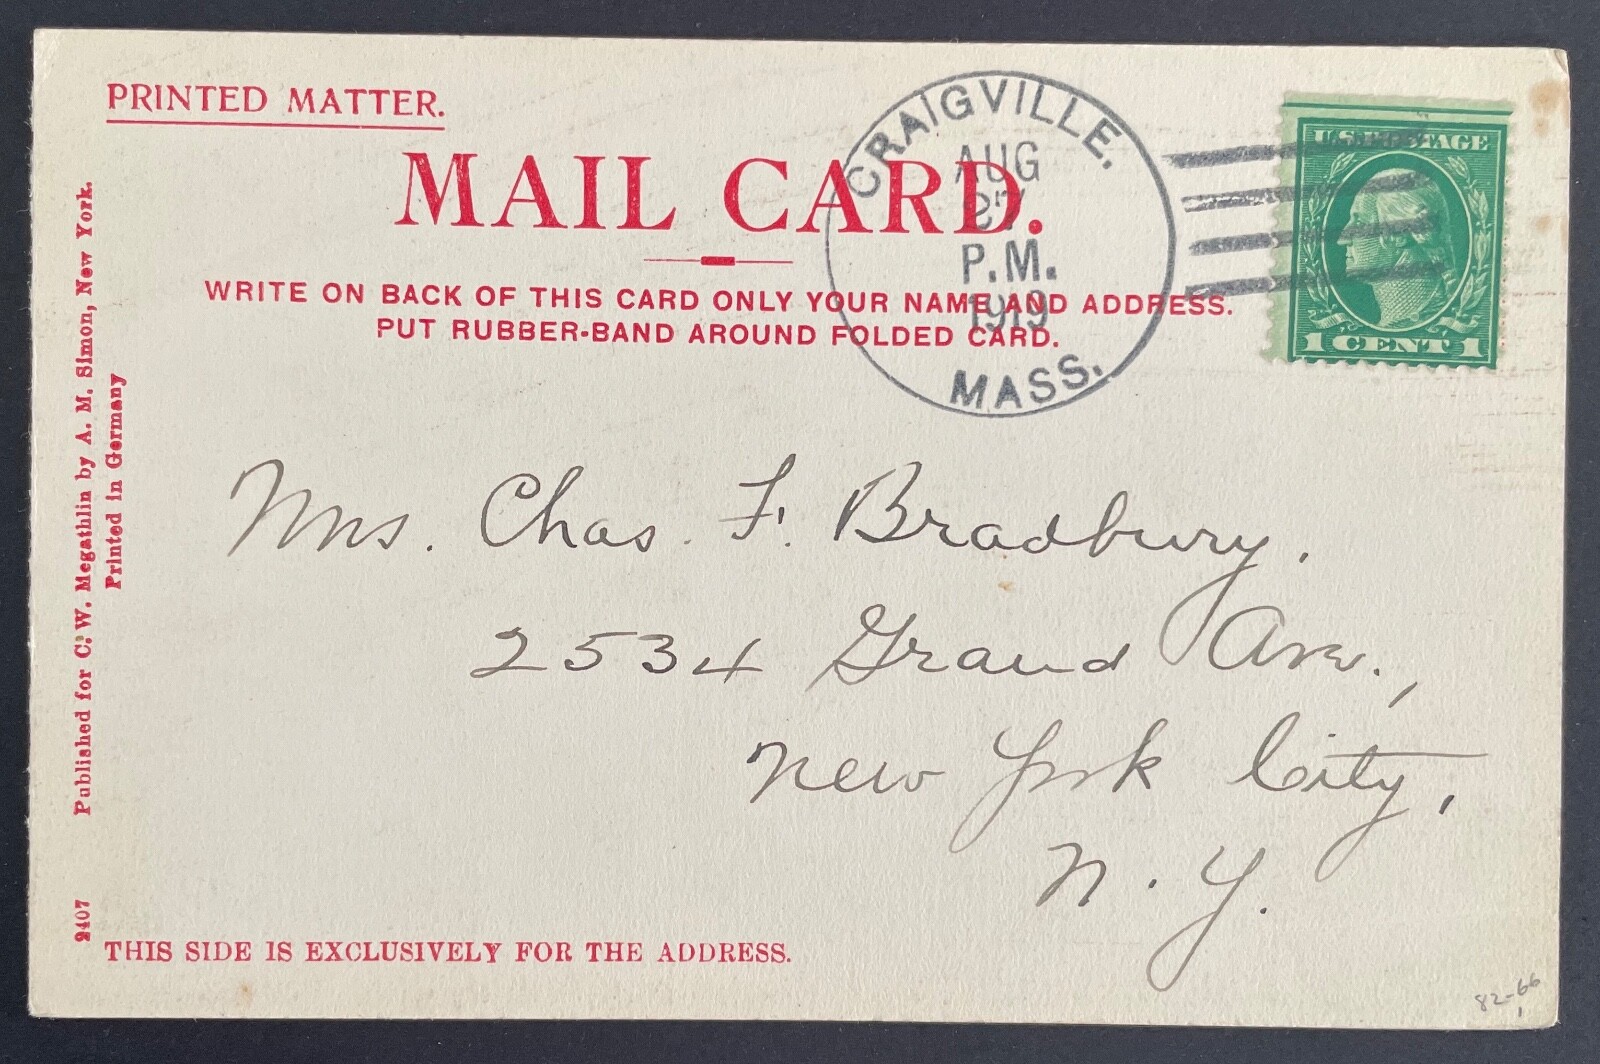 PRINTED MATTER.
MAIL CARD.
WRITE ON BACK OF THIS CARD ONLY YOUR NAME AND ADDRESS.
PUT RUBBER-BAND AROUND FOLDED CARD.
CRAIGVILLE.
AUG
27
P.M.
1919
MASS.
U.S. POSTAGE
1 CENT 1
Published for C. W. Megathlin by A. M. Simon, New York.
Printed in Germany
2407
Mrs. Chas. F. Bradbury.
2534 Grand Ave.,
New York City,
N. Y.
THIS SIDE IS EXCLUSIVELY FOR THE ADDRESS.
82-66
1